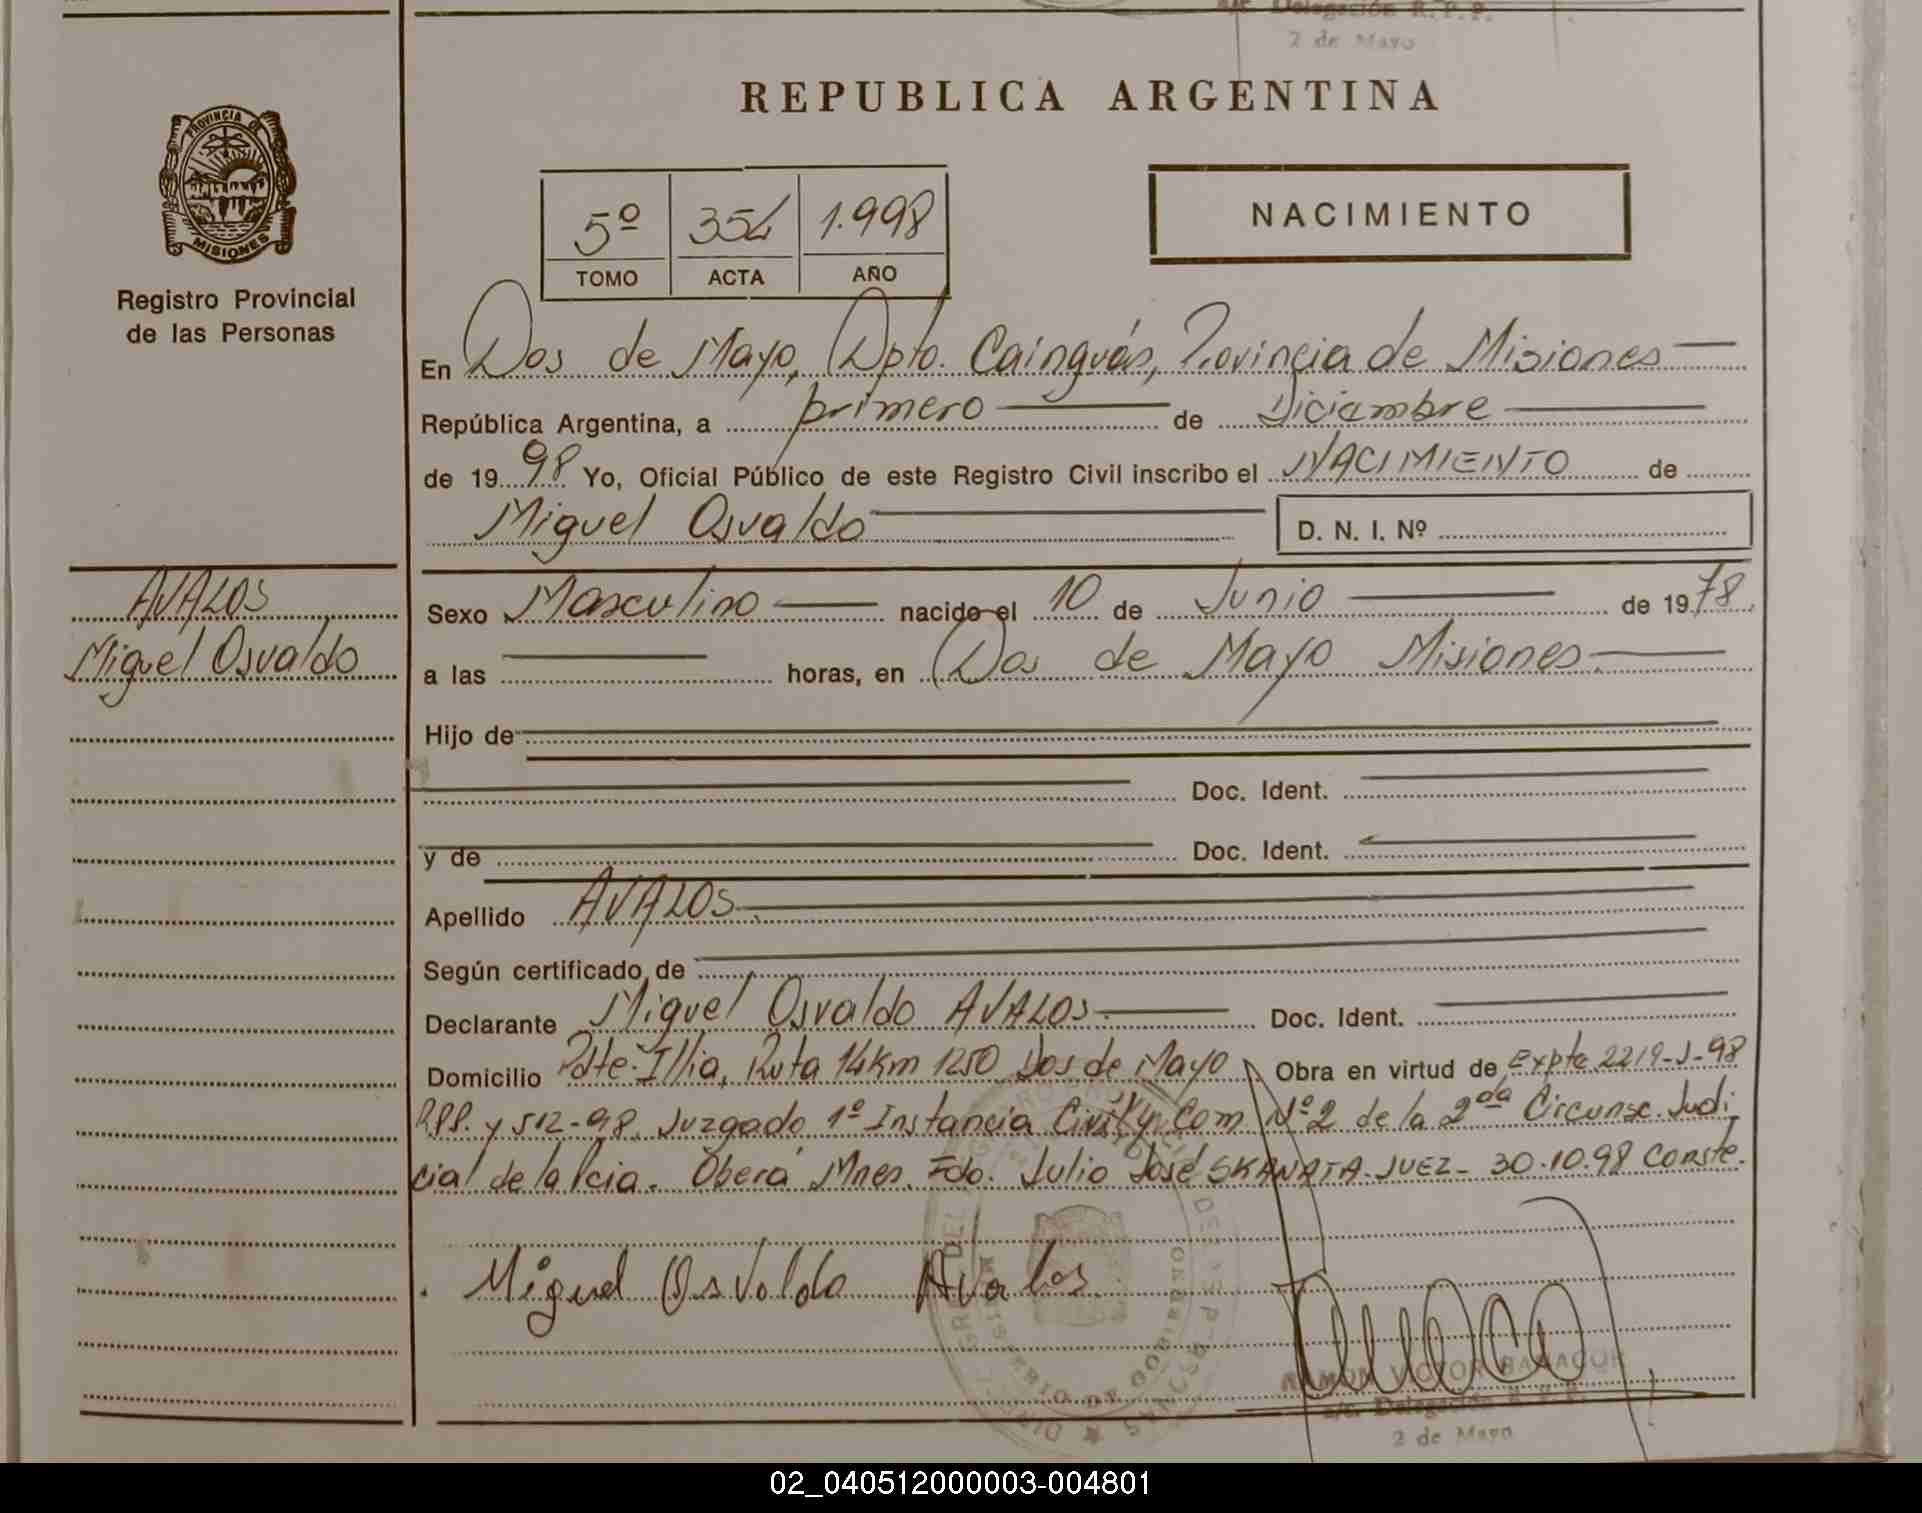 a/c. Delegación R. P. P.
2 de Mayo
REPUBLICA ARGENTINA
PROVINCIA DE
MISIONES
Registro Provincial
de las Personas
5º 354 1.998
TOMO ACTA AÑO
NACIMIENTO
En Dos de Mayo, Dpto. Cainguás, Provincia de Misiones
República Argentina, a primero de Diciembre
de 1998 Yo, Oficial Público de este Registro Civil inscribo el NACIMIENTO de
Miguel Osvaldo D. N. I. Nº
AVALOS
Miguel Osvaldo
Sexo Masculino nacido el 10 de Junio de 1978
a las horas, en Dos de Mayo Misiones
Hijo de
Doc. Ident.
y de Doc. Ident.
Apellido AVALOS
Según certificado de
Declarante Miguel Osvaldo AVALOS Doc. Ident.
Domicilio Pdte. Illia, Ruta 14 Km 1250 Dos de Mayo Obra en virtud de Expte 2219-J-98
R.P.P. y 512-98. Juzgado 1º Instancia Civil y Com Nº 2 de la 2da Circunsc. Judi
cial de la Pcia. Oberá Mnes. Fdo. Julio José SKANATA JUEZ- 30.10.98 Conste.
Miguel Osvaldo Avalos
RAMON VICTOR
a/c. Delegación R. P. P.
2 de Mayo
02_040512000003-004801